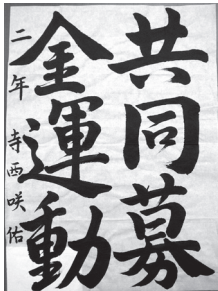 共同募
金運動
二年 寺西咲佑